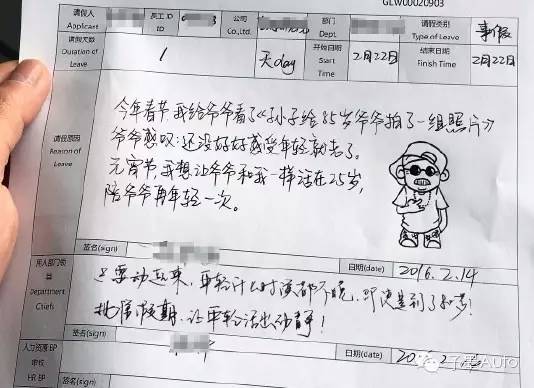 GLW00020903
请假人 Applicant 员工ID ID 公司 Co,Ltd. 部门 Dept. 请假类别 Type of Leave 事假
请假天数 Duration of Leave 1 天day 开始日期 Start Time 2月22日 结束日期 Finish Time 2月22日
请假原因 Reason of Leave
今年春节我给爷爷看了《孙子给85岁爷爷拍了一组照片》
爷爷感叹:还没好好感受年轻就老了。
元宵节我想让爷爷和我一样活在25岁,
陪爷爷再年轻一次。
签名(sign) 日期(date) 2016.2.14
用人部门
Department Chiefs
要动起来,年轻什么时候都不晚,即使是到了80岁!
批准假期,让年轻活出动静!
签名(sign) 日期(date)
人力资源BP
审核
HR BP
AUTO